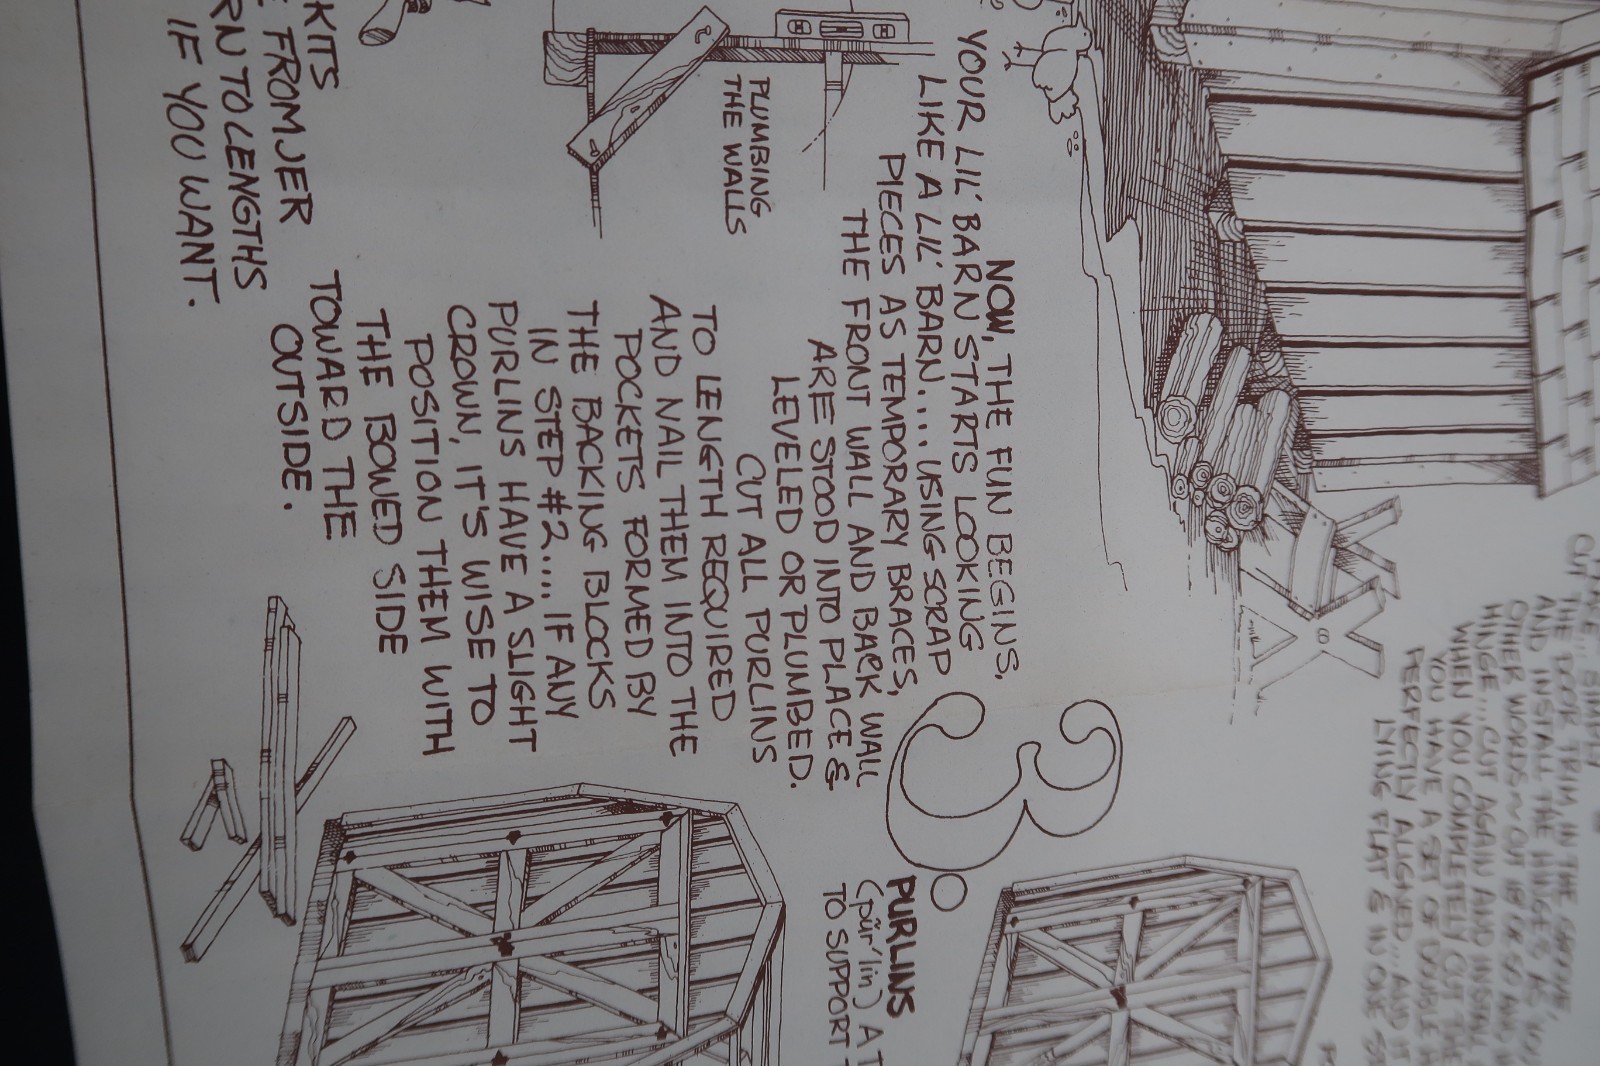 NOW, THE FUN BEGINS,
YOUR LIL' BARN STARTS LOOKING
LIKE A LIL' BARN.... USING SCRAP
PIECES AS TEMPORARY BRACES,
THE FRONT WALL AND BACK WALL
ARE STOOD INTO PLACE &
LEVELED OR PLUMBED.
CUT ALL PURLINS
TO LENGTH REQUIRED
AND NAIL THEM INTO THE
POCKETS FORMED BY
THE BACKING BLOCKS
IN STEP #2.... IF ANY
PURLINS HAVE A SLIGHT
CROWN, IT'S WISE TO
POSITION THEM WITH
THE BOWED SIDE
TOWARD THE
OUTSIDE.
PLUMBING
THE WALLS
KITS
FROM JER
RN TO LENGTHS
IF YOU WANT.
3.
PURLINS
(pûr'lin) A T
TO SUPPORT
SIMPLY
CUT THE DOOR TRIM IN THE
AND INSTALL THE HINGES AS
OTHER WORDS~CUT
HINGE... CUT AGAIN AND INSTALL
WHEN YOU COMPLETELY CUT THE
YOU HAVE A SET OF DOUBLE
PERFECTLY ALIGNED... AND IT
LYING FLAT & IN ONE